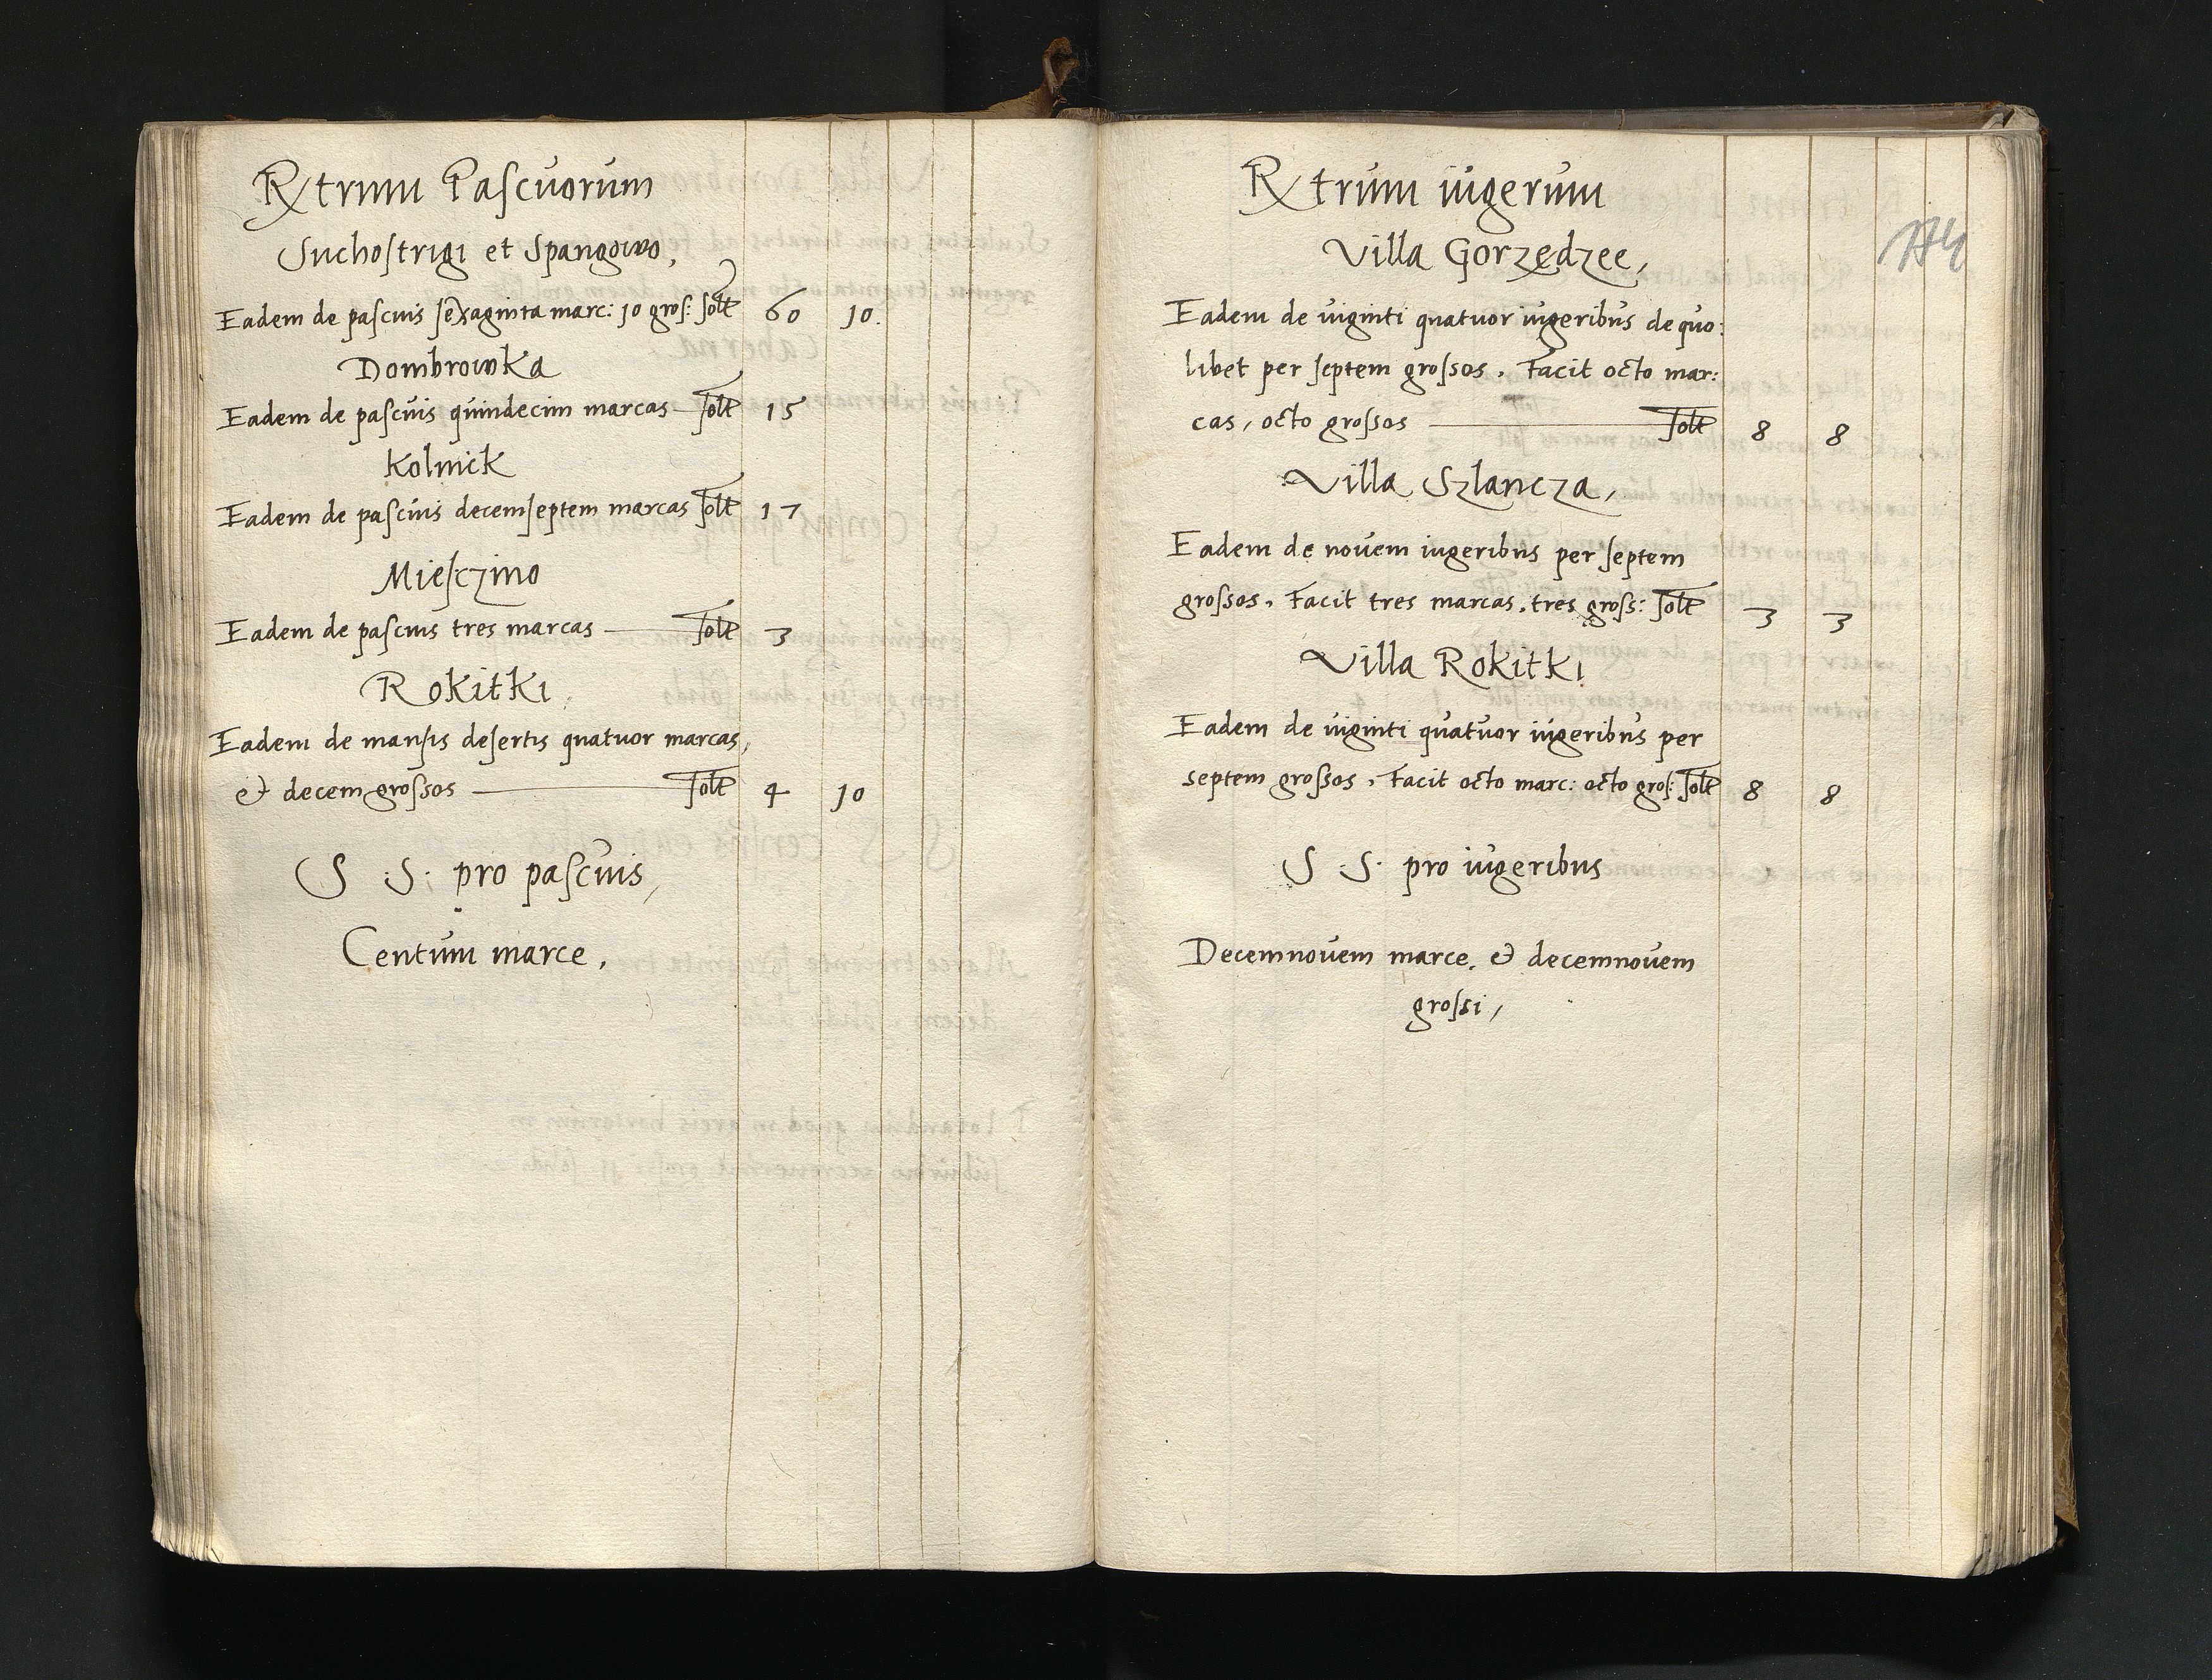 Rxtrum Pascuorum
Suchostrigi et Spangowo,
Eadem de pascuis sexaginta marc: 10 gros: solt 60 10.
Dombrowka
Eadem de pascuis quindecim marcas solt 15
Kolnick
Eadem de pascuis decemseptem marcas solt 17
Miesczino
Eadem de pascuis tres marcas solt 3
Rokitki
Eadem de mansis desertis quatuor marcas,
et decem grossos solt 4 10
S S: pro pascuis,
Centum marce,
Rxtrum iugerum
Villa Gorzędzee,
Eadem de uiginti quatuor iugeribus de quo:
libet per septem grossos, Facit octo mar:
cas, octo grossos solt 8 8
Villa Szlancza,
Eadem de novem iugeribus per septem
grossos, Facit tres marcas, tres gross: solt 3 3
Villa Rokitki
Eadem de uiginti quatuor iugeribus per
septem grossos, Facit octo marc: octo gros: solt 8 8
S S: pro iugeribus
Decemnovem marce, et decemnovem
grossi,